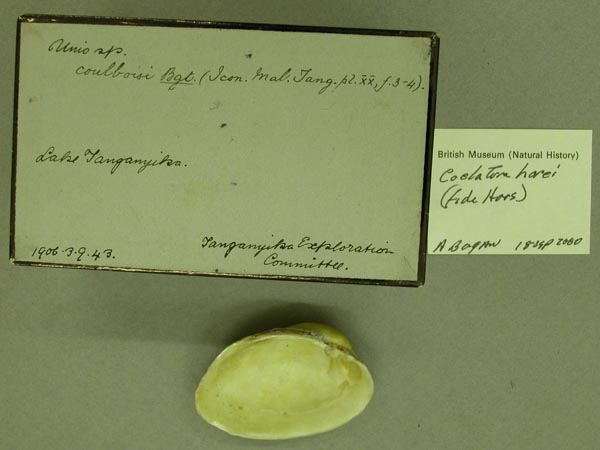 Unio sp.
coulboisi Bgt. (Icon. Mal. Tang. pl. XX, f. 3-4).
Lake Tanganyika.
1906.3.9.43.
Tanganyika Exploration
Committee.
British Museum (Natural History)
Coelatura horei
(fide Haas)
A Bogan 18 Sep 2000